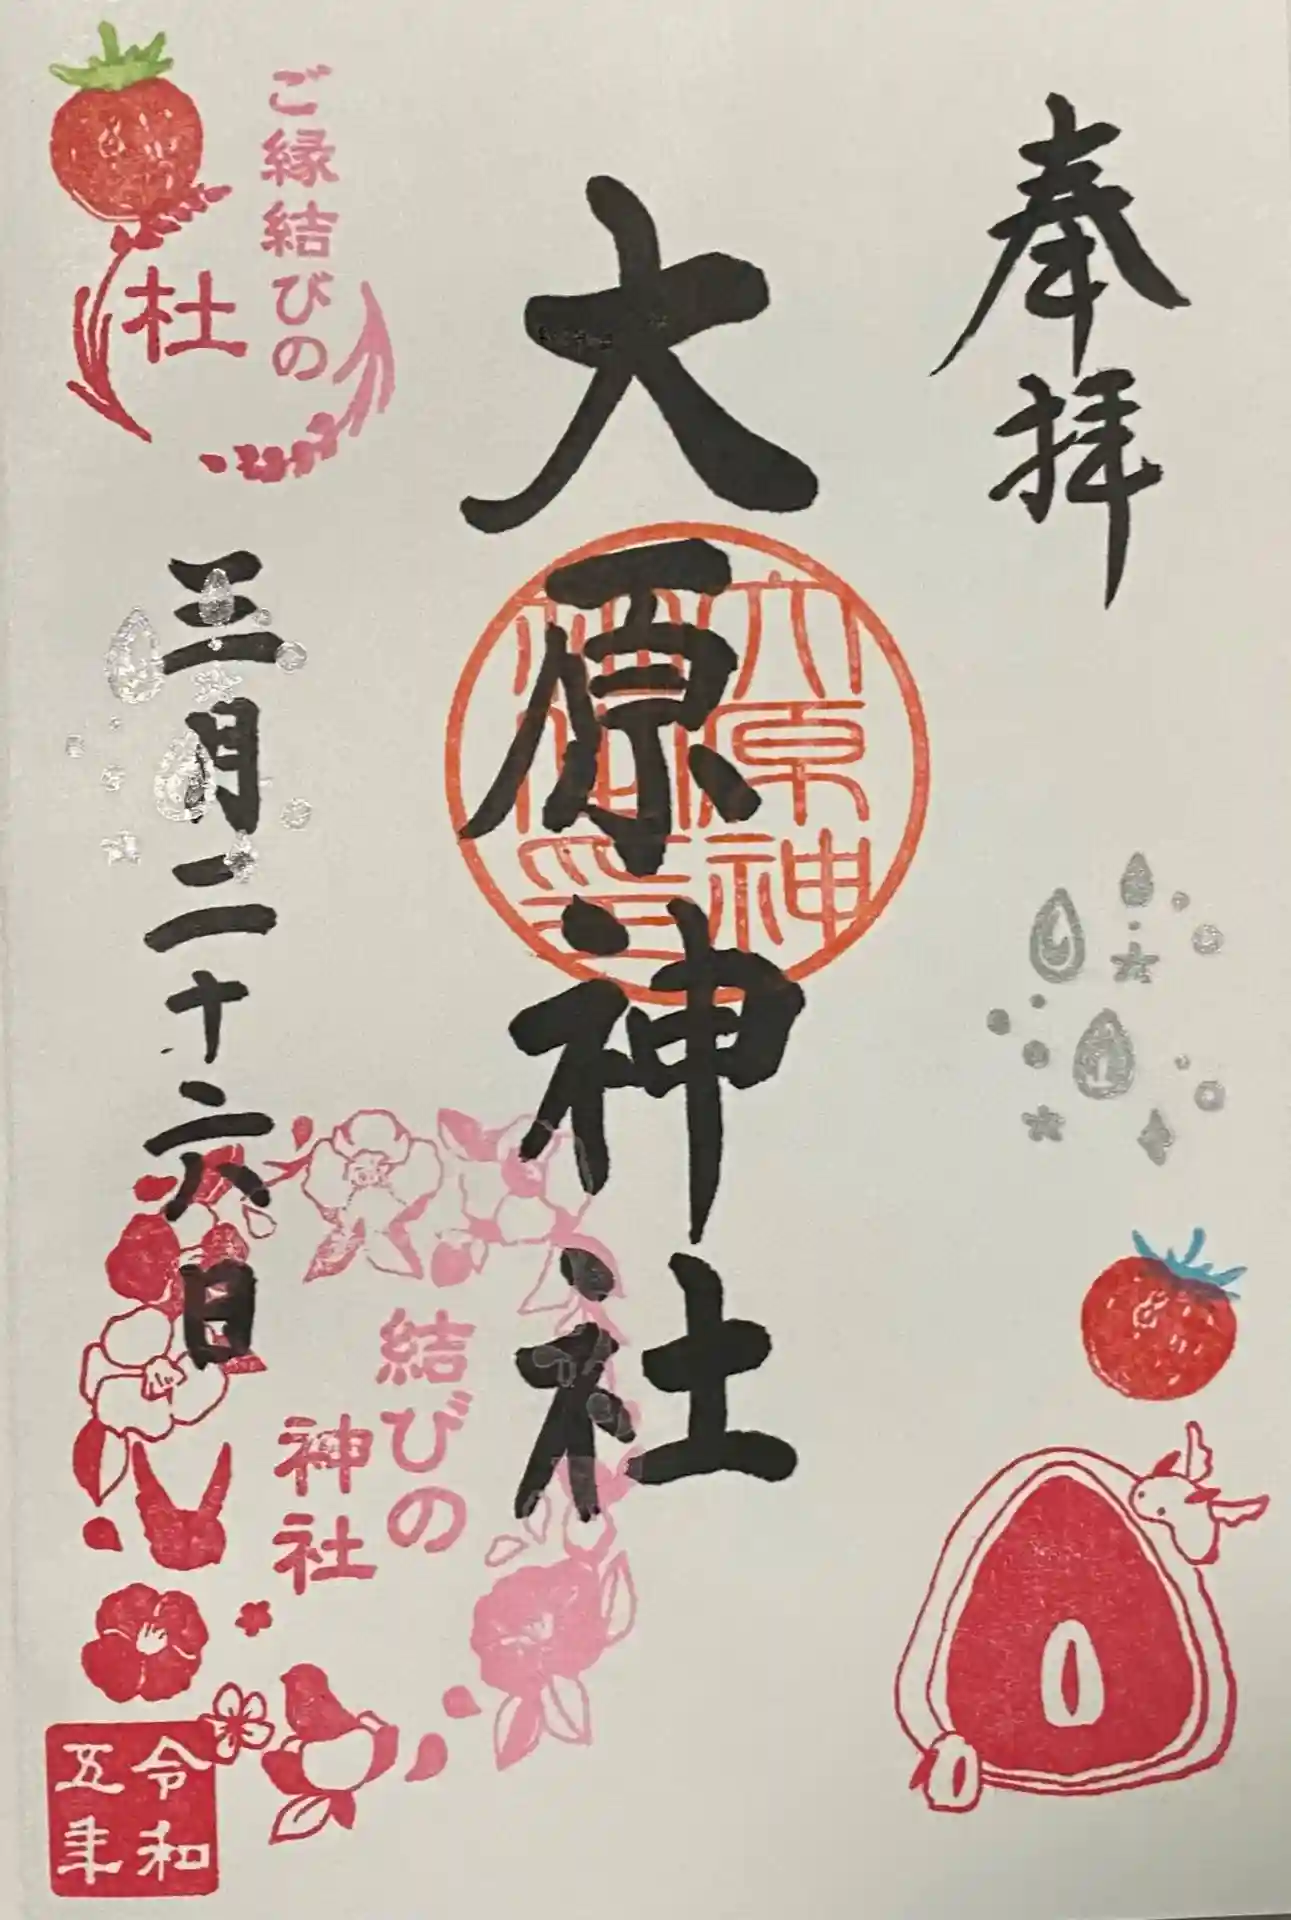 奉拝
大原神社
大原神社御印
ご縁結びの
杜
三月二十六日
結びの
神社
令和
五年